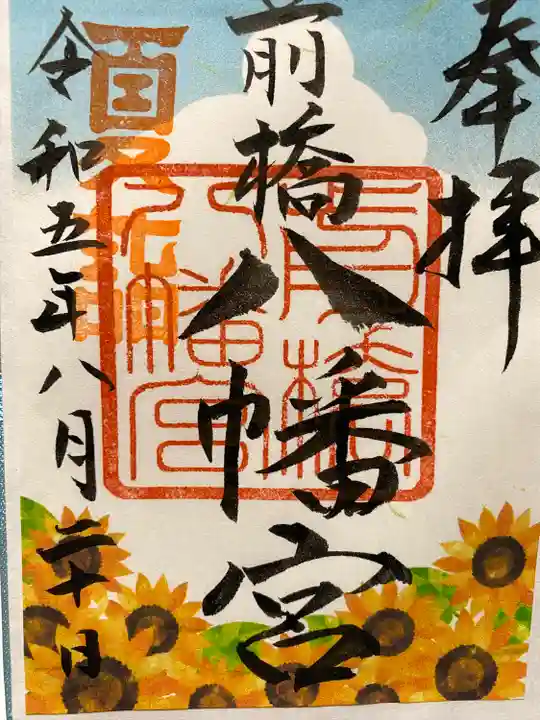 奉拝
前橋八幡宮
前橋
八幡宮
令和五年八月二十日